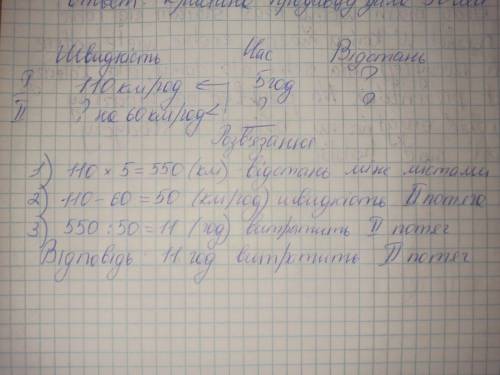 Ответ: Кристина
Швидкість Час Відстань
I 110 км/год 5 год ?
II ? на 60 км/год < ? ?
Розв'язання
1) 110 × 5 = 550 (км) відстань між містами
2) 110 - 60 = 50 (км/год) швидкість II потяга
3) 550 : 50 = 11 (год) витратить II потяг
Відповідь 11 год витратить II потяг